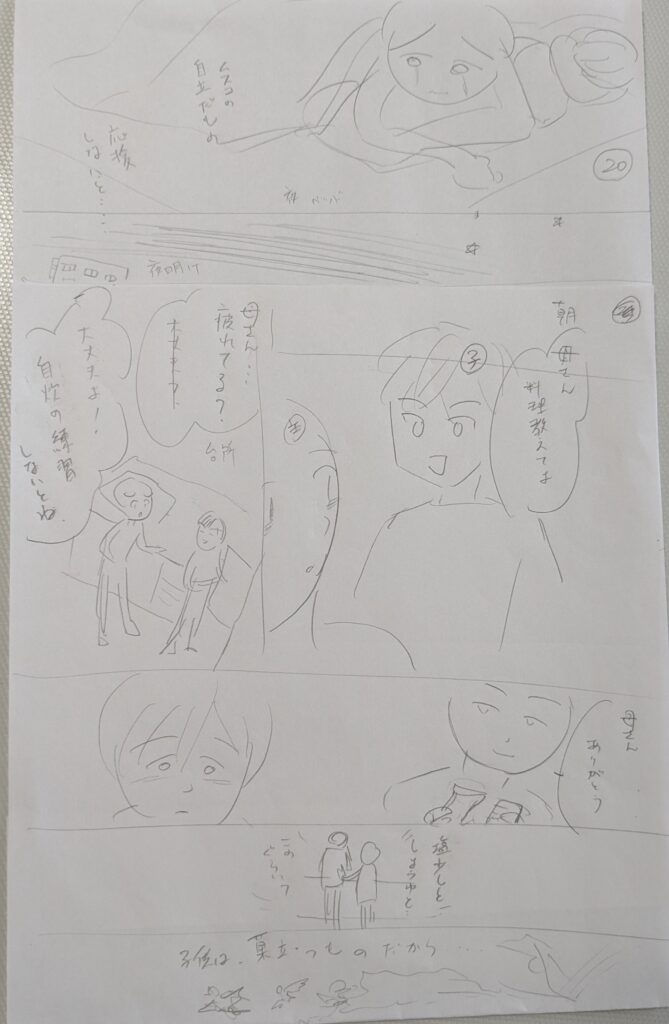 ムスコの
自立だもの
応援
しないと……
⑳
夜明け
朝
母さん
料理教えてよ
子
母
母さん…
疲れてる?
大丈夫?
台所
大丈夫よ!
自炊の練習
しないとね
母さん
ありがとう
塩少しと…
しょうゆと…
このぐらい?
子供は、巣立つものだから…